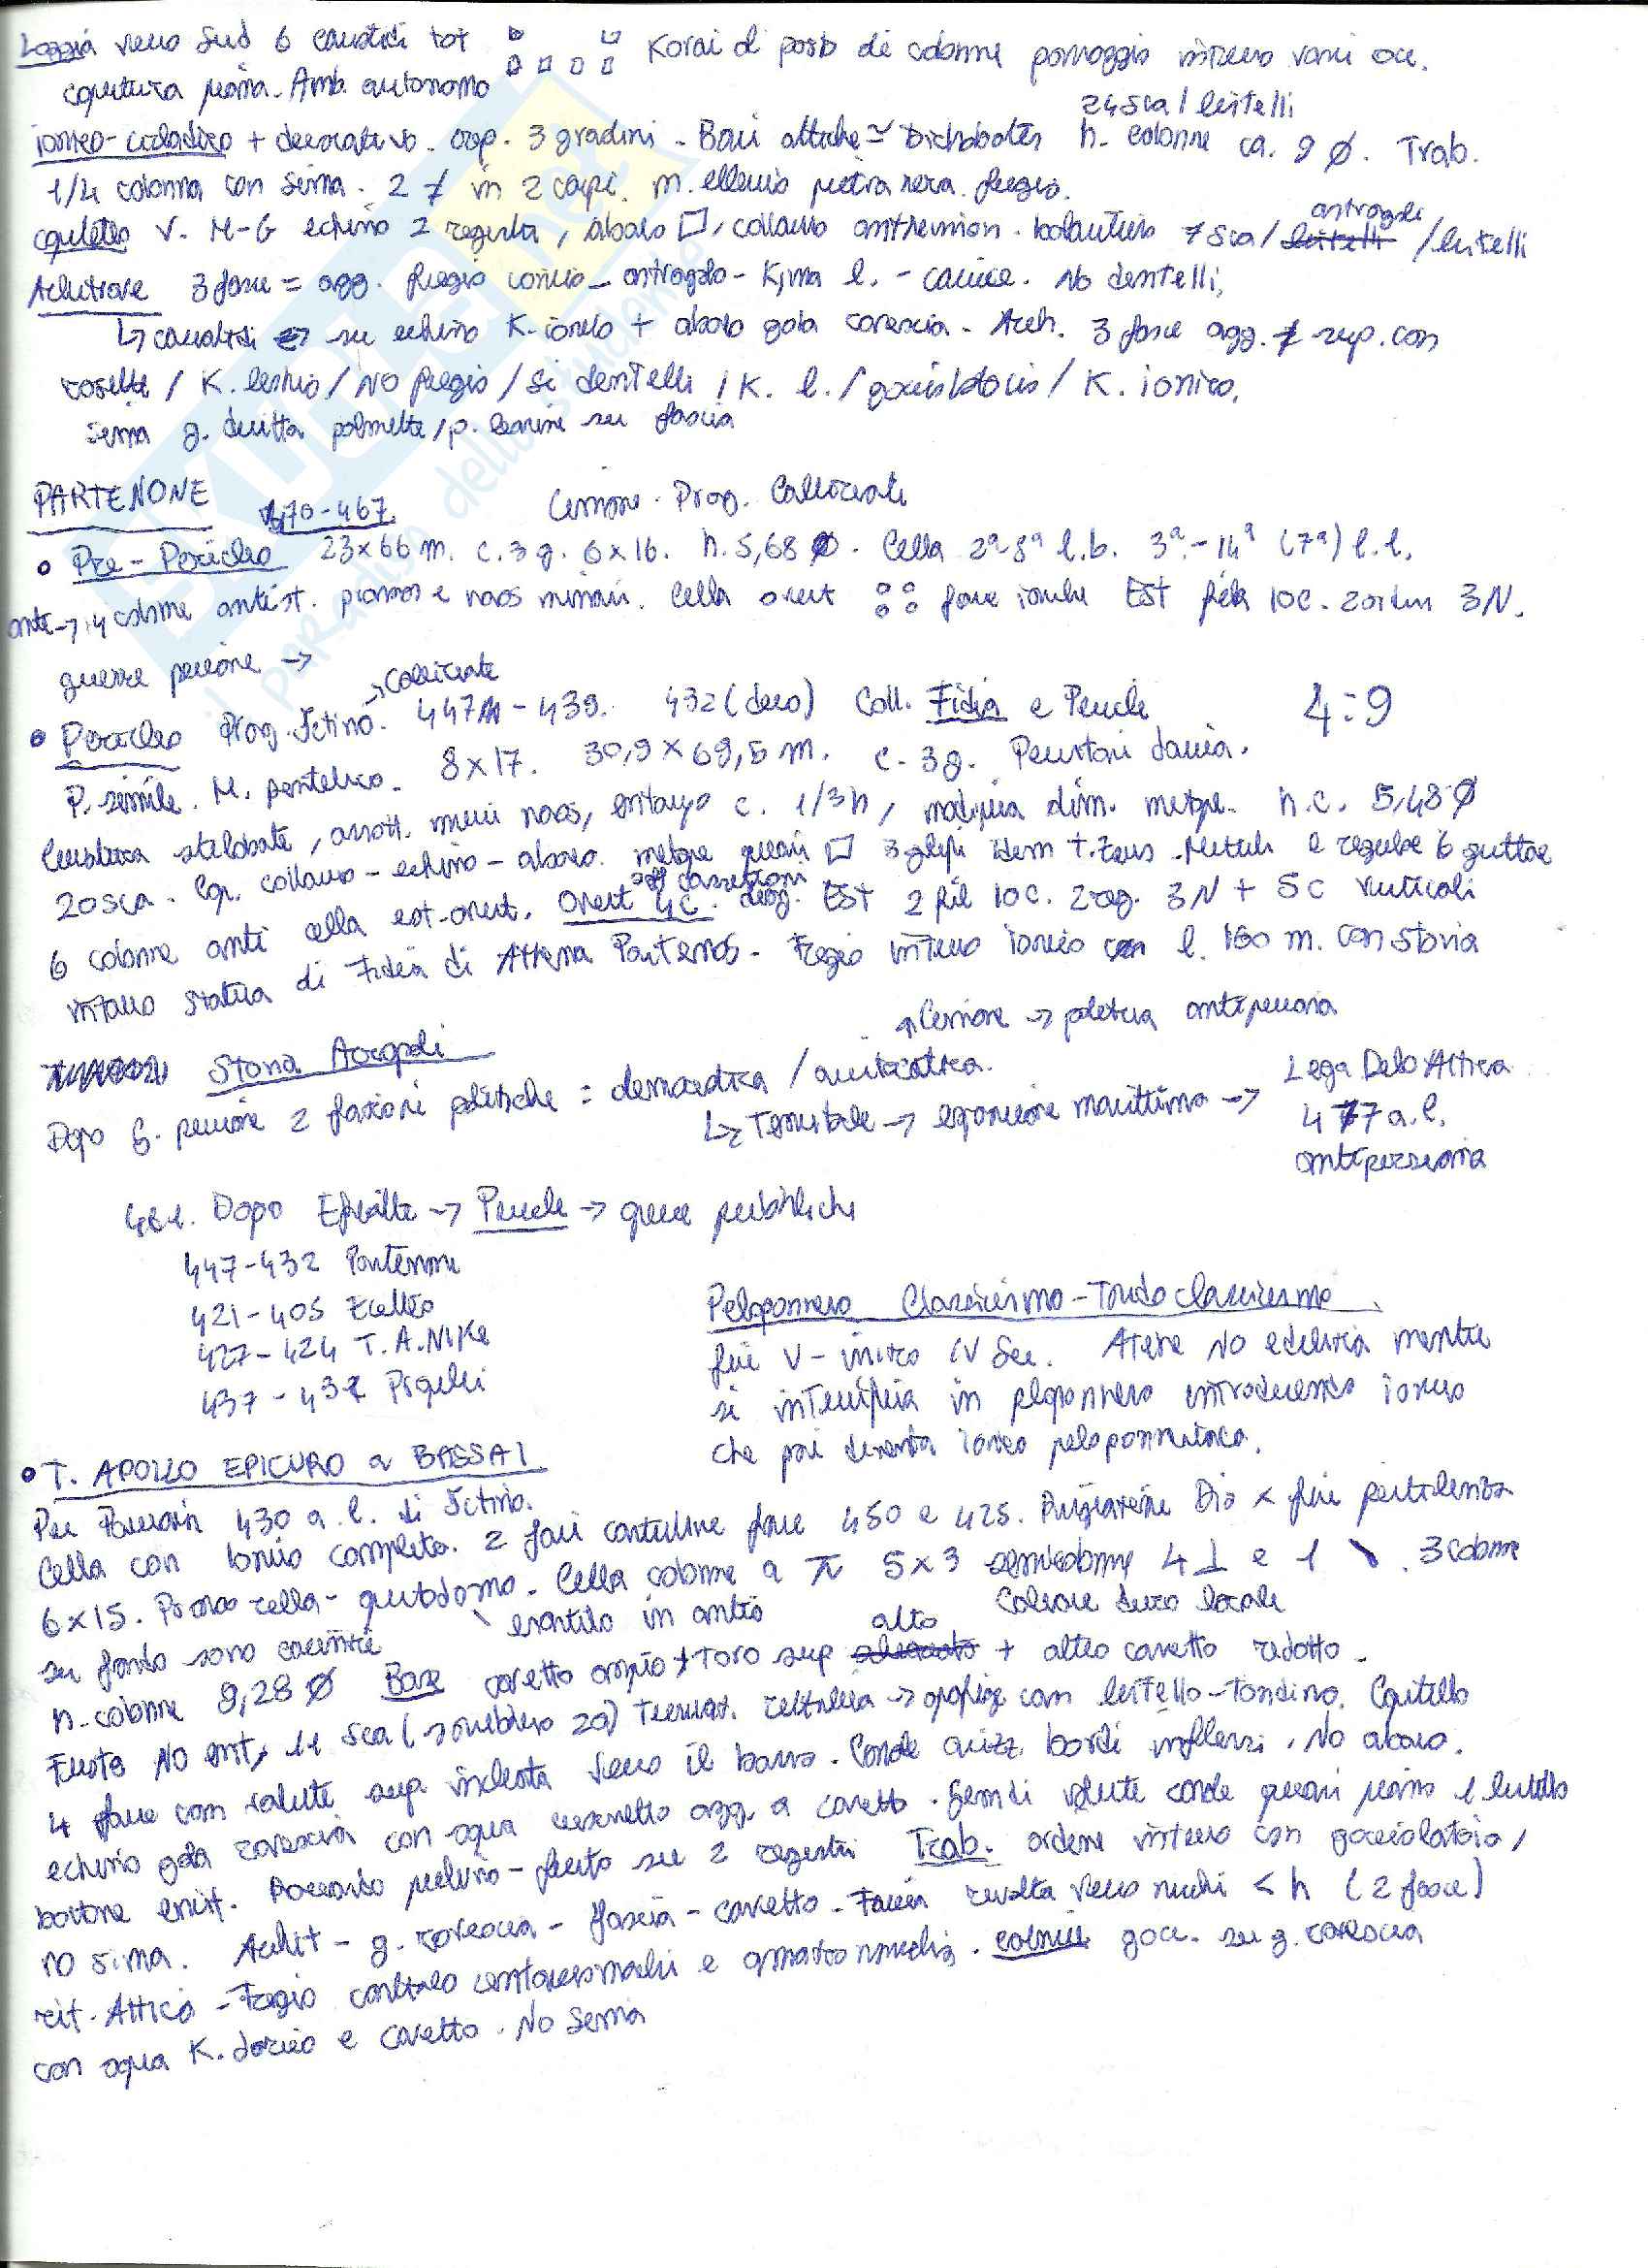 Loggia verso Sud 6 cariatidi tot Korai al posto di colonne passaggio interno vani occ.
copertura piana. Amb. autonomo
24 sca / listelli
ionico-cicladico + decorativo. 3 gradini - Basi attiche ≃ h. colonne ca. 9 Ø. Trab.
1/4 colonna con sima. 2 ≠ in 2 capi. pietra nera fregio.
capitello V. M-G echino 2 registri, abaco □, collarino anthemion. balaustrino 7 sca / astragali / listelli
Architrave 3 fasce = agg. fregio ionico - astragalo - Kima l. - cornice. No dentelli,
↳ cariatidi su echino K. ionico + abaco gola rovescia. Arch. 3 fasce agg. ≠ sup. con
rosette / K. lesbio / NO fregio / Si dentelli / K. l. / gocciolatoio / K. ionico,
sima g. diritta palmette / p. leonine su fascia
PARTENONE
470-467 Cimone. Prog. Callicrate
• Pre-Pericleo 23x66 m. c. 3 g. 6x16. h. 5,68 Ø. Cella 2ª-5ª l.b. 3ª-14ª (7ª) l.l.
ante → 4 colonne antist. pronaos e naos minori. Cella ovest fasce ioniche EST fila 10 c. 2 ordini 3 N.
guerre persiane →
→ Callicrate
• Pericleo Prog. Ictino. 447 - 439. 432 (deco) Coll. Fidia e Pericle 4:9
P. simile. M. pentelico. 8x17. 30,9x69,5 m. c. 3 g. Peristasi dorica.
Curvatura stilobate, assott. muri naos, entasi c. 1/3 h, dim. metope. h. c. 5,48 Ø
20 sca. Cap. collarino - echino - abaco. metope quasi □ 3 glifi idem t. Zeus. Mutuli e regulae 6 guttae
6 colonne anti cella est-ovest. Ovest 4c. EST 2 file 10 c. 2 ord. 3 N + 5 c verticali
cassettoni
intorno statua di Fidia di Athena Partenos. Fregio interno ionico l. 160 m. con storia
Storia Acropoli
↗ Cimone → politica antipersiana
Dopo G. persiane 2 fazioni politiche : democratica / aristocratica.
↳ Temistocle → espansione marittima → Lega Delo Attica
477 a.C.
antipersiana
461. Dopo Efialte → Pericle → opere pubbliche
447-432 Partenone
421-405 Eretteo
427-424 T. A. NIKe
437-432 Propilei
Peloponneso Classicismo-Tardoclassicismo
fine V - inizio IV Sec. Atene NO edilizia mentre
si intensifica in peloponneso introducendo ionico
che poi diventa ionico peloponnesiaco.
• T. APOLLO EPICURO a BASSAI
Per Pausania 430 a.C. di Ictino.
Cella con ionico completo. 2 fasi costruttive fase 450 e 425. Ringraziare Dio x fine pestilenza
6x15. Pronao cella - opistodomo. Cella colonne a π 5x3 semicolonne 4 ⊥ e 1 \. 3 colonne
su fondo sono corinzie \ esastilo in antis Calcare duro locale
h. colonne 9,28 Ø Base cavetto ampio + toro sup alto + altro cavetto ridotto.
Fusto NO ent, 11 sca (sarebbero 20) Terminaz. rettilinea → apofige con listello-tondino. Capitello
4 facce con volute sup inclinata verso il basso. Corde orizz. bordi inflessi. No abaco.
echino gola rovescia con sopra agg. a cavetto. Semdi volute corde quasi piano e listello
bottone . Raccordo pulvino - fusto su 2 registri Trab. ordine interno con gocciolatoio /
NO sima. Archit - g. rovescia - fascia - cavetto. Faccia rivolta verso nicchi < h (2 fasce)
rit. Attico - Fregio continuo centauromachie e amazonomachia. cornice gocc. su g. rovescia
con sopra K. dorico e cavetto. No Sima